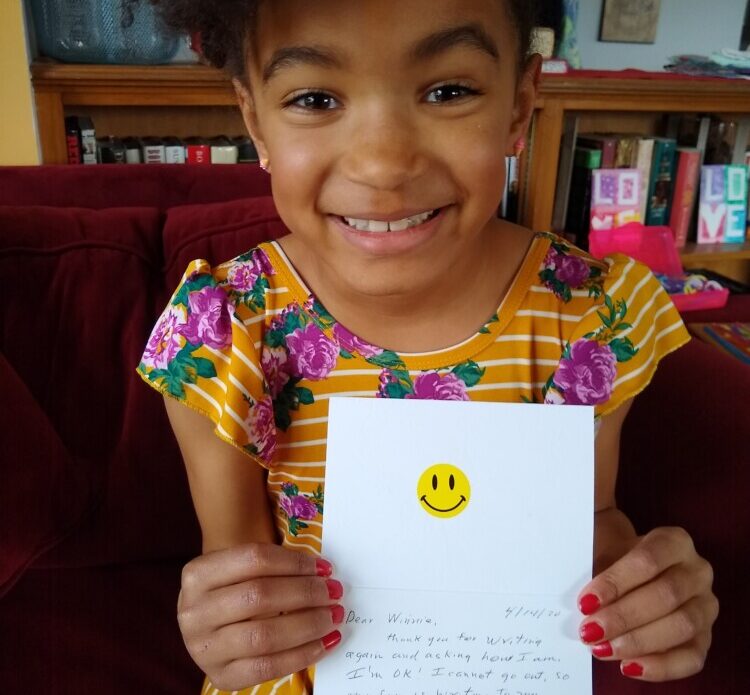 LOVE
LOVE
4/14/20
Dear Winnie,
thank you for writing
again and asking how I am.
I'm OK! I cannot go out, so